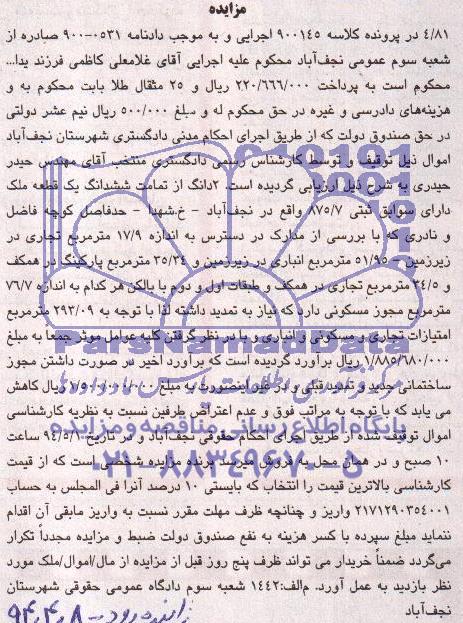 مزایده
۴/۸۱ در پرونده کلاسه ۹۰۰۱۴۵ اجرایی و به موجب دادنامه ۰۵۳۱-۹۰۰ صادره از
شعبه سوم عمومی نجف‌آباد محکوم علیه اجرایی آقای غلامعلی کاظمی فرزند یدا...
محکوم است به پرداخت ۲۲۰/۶۶۶/۰۰۰ ریال و ۲۵ مثقال طلا بابت محکوم به و
هزینه‌های دادرسی و غیره در حق محکوم له و مبلغ ۵۰۰/۰۰۰ ریال نیم عشر دولتی
در حق صندوق دولت که از طریق اجرای احکام مدنی دادگستری شهرستان نجف‌آباد
اموال ذیل توقیف و توسط کارشناس رسمی دادگستری منتخب آقای مهندس حیدر
حیدری به شرح ذیل ارزیابی گردیده است. ۲دانگ از تمامت ششدانگ یک قطعه ملک
دارای سوابق ثبتی ۸۷۵/۷ واقع در نجف‌آباد - خ.شهدا - حدفاصل کوچه فاضل
و نادری که با بررسی از مدارک در دسترس به اندازه ۱۷/۹ مترمربع تجاری در
زیرزمین - ۵۱/۹۵ مترمربع انباری در زیرزمین و ۲۵/۳۴ مترمربع پارکینگ در همکف
و ۳۴/۵ مترمربع تجاری در همکف و طبقات اول و دوم با بالکن هر کدام به اندازه ۷۶/۷
مترمربع مجوز مسکونی دارد که نیاز به تمدید داشته لذا با توجه به ۲۹۳/۰۹ مترمربع
امتیازات تجاری و مسکونی و انباری و با در نظر گرفتن کلیه عوامل موثر جمعا به مبلغ
۱/۸۸۵/۶۸۰/۰۰۰ ریال برآورد گردیده است که برآورد اخیر در صورت داشتن مجوز
ساختمانی جدید و تمدید قبلی و در غیر اینصورت به مبلغ ریال کاهش
می یابد که با توجه به مراتب فوق و عدم اعتراض طرفین نسبت به نظریه کارشناسی
اموال توقیف شده از طریق اجرای احکام حقوقی نجف‌آباد و در تاریخ ۹۴/۵/۱ ساعت
۱۰ صبح و در همان محل به فروش میرسد برنده مزایده شخصی است که از قیمت
کارشناسی بالاترین قیمت را انتخاب که بایستی ۱۰ درصد آنرا فی المجلس به حساب
۲۱۷۱۲۹۰۳۵۴۰۰۱ واریز و چنانچه ظرف مهلت مقرر نسبت به واریز مابقی آن اقدام
ننماید مبلغ سپرده با کسر هزینه به نفع صندوق دولت ضبط و مزایده مجدداً تکرار
می‌گردد ضمناً خریدار می تواند ظرف پنج روز قبل از مزایده از مال/اموال/ملک مورد
نظر بازدید به عمل آورد. م‌الف:۱۴۴۲ شعبه سوم دادگاه عمومی حقوقی شهرستان
نجف‌آباد
زاینده رود - ۹۴،۴،۸
ParsNamadData
پایگاه اطلاع رسانی مناقصه و مزایده
۰۲۱-۸۸۳۴۹۶۷۰-۵